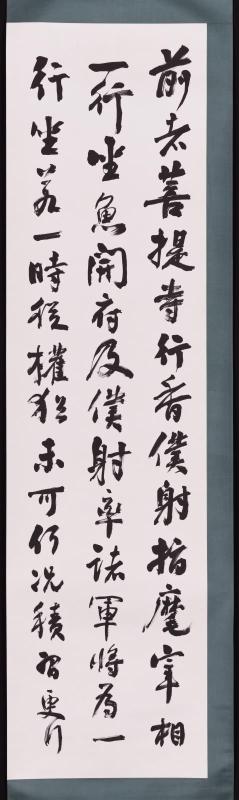 前者菩提寺行香僕射指麾宰相
一行坐魚開府及僕射率諸軍將為一
行坐若一時從權猶未可何況積習更行